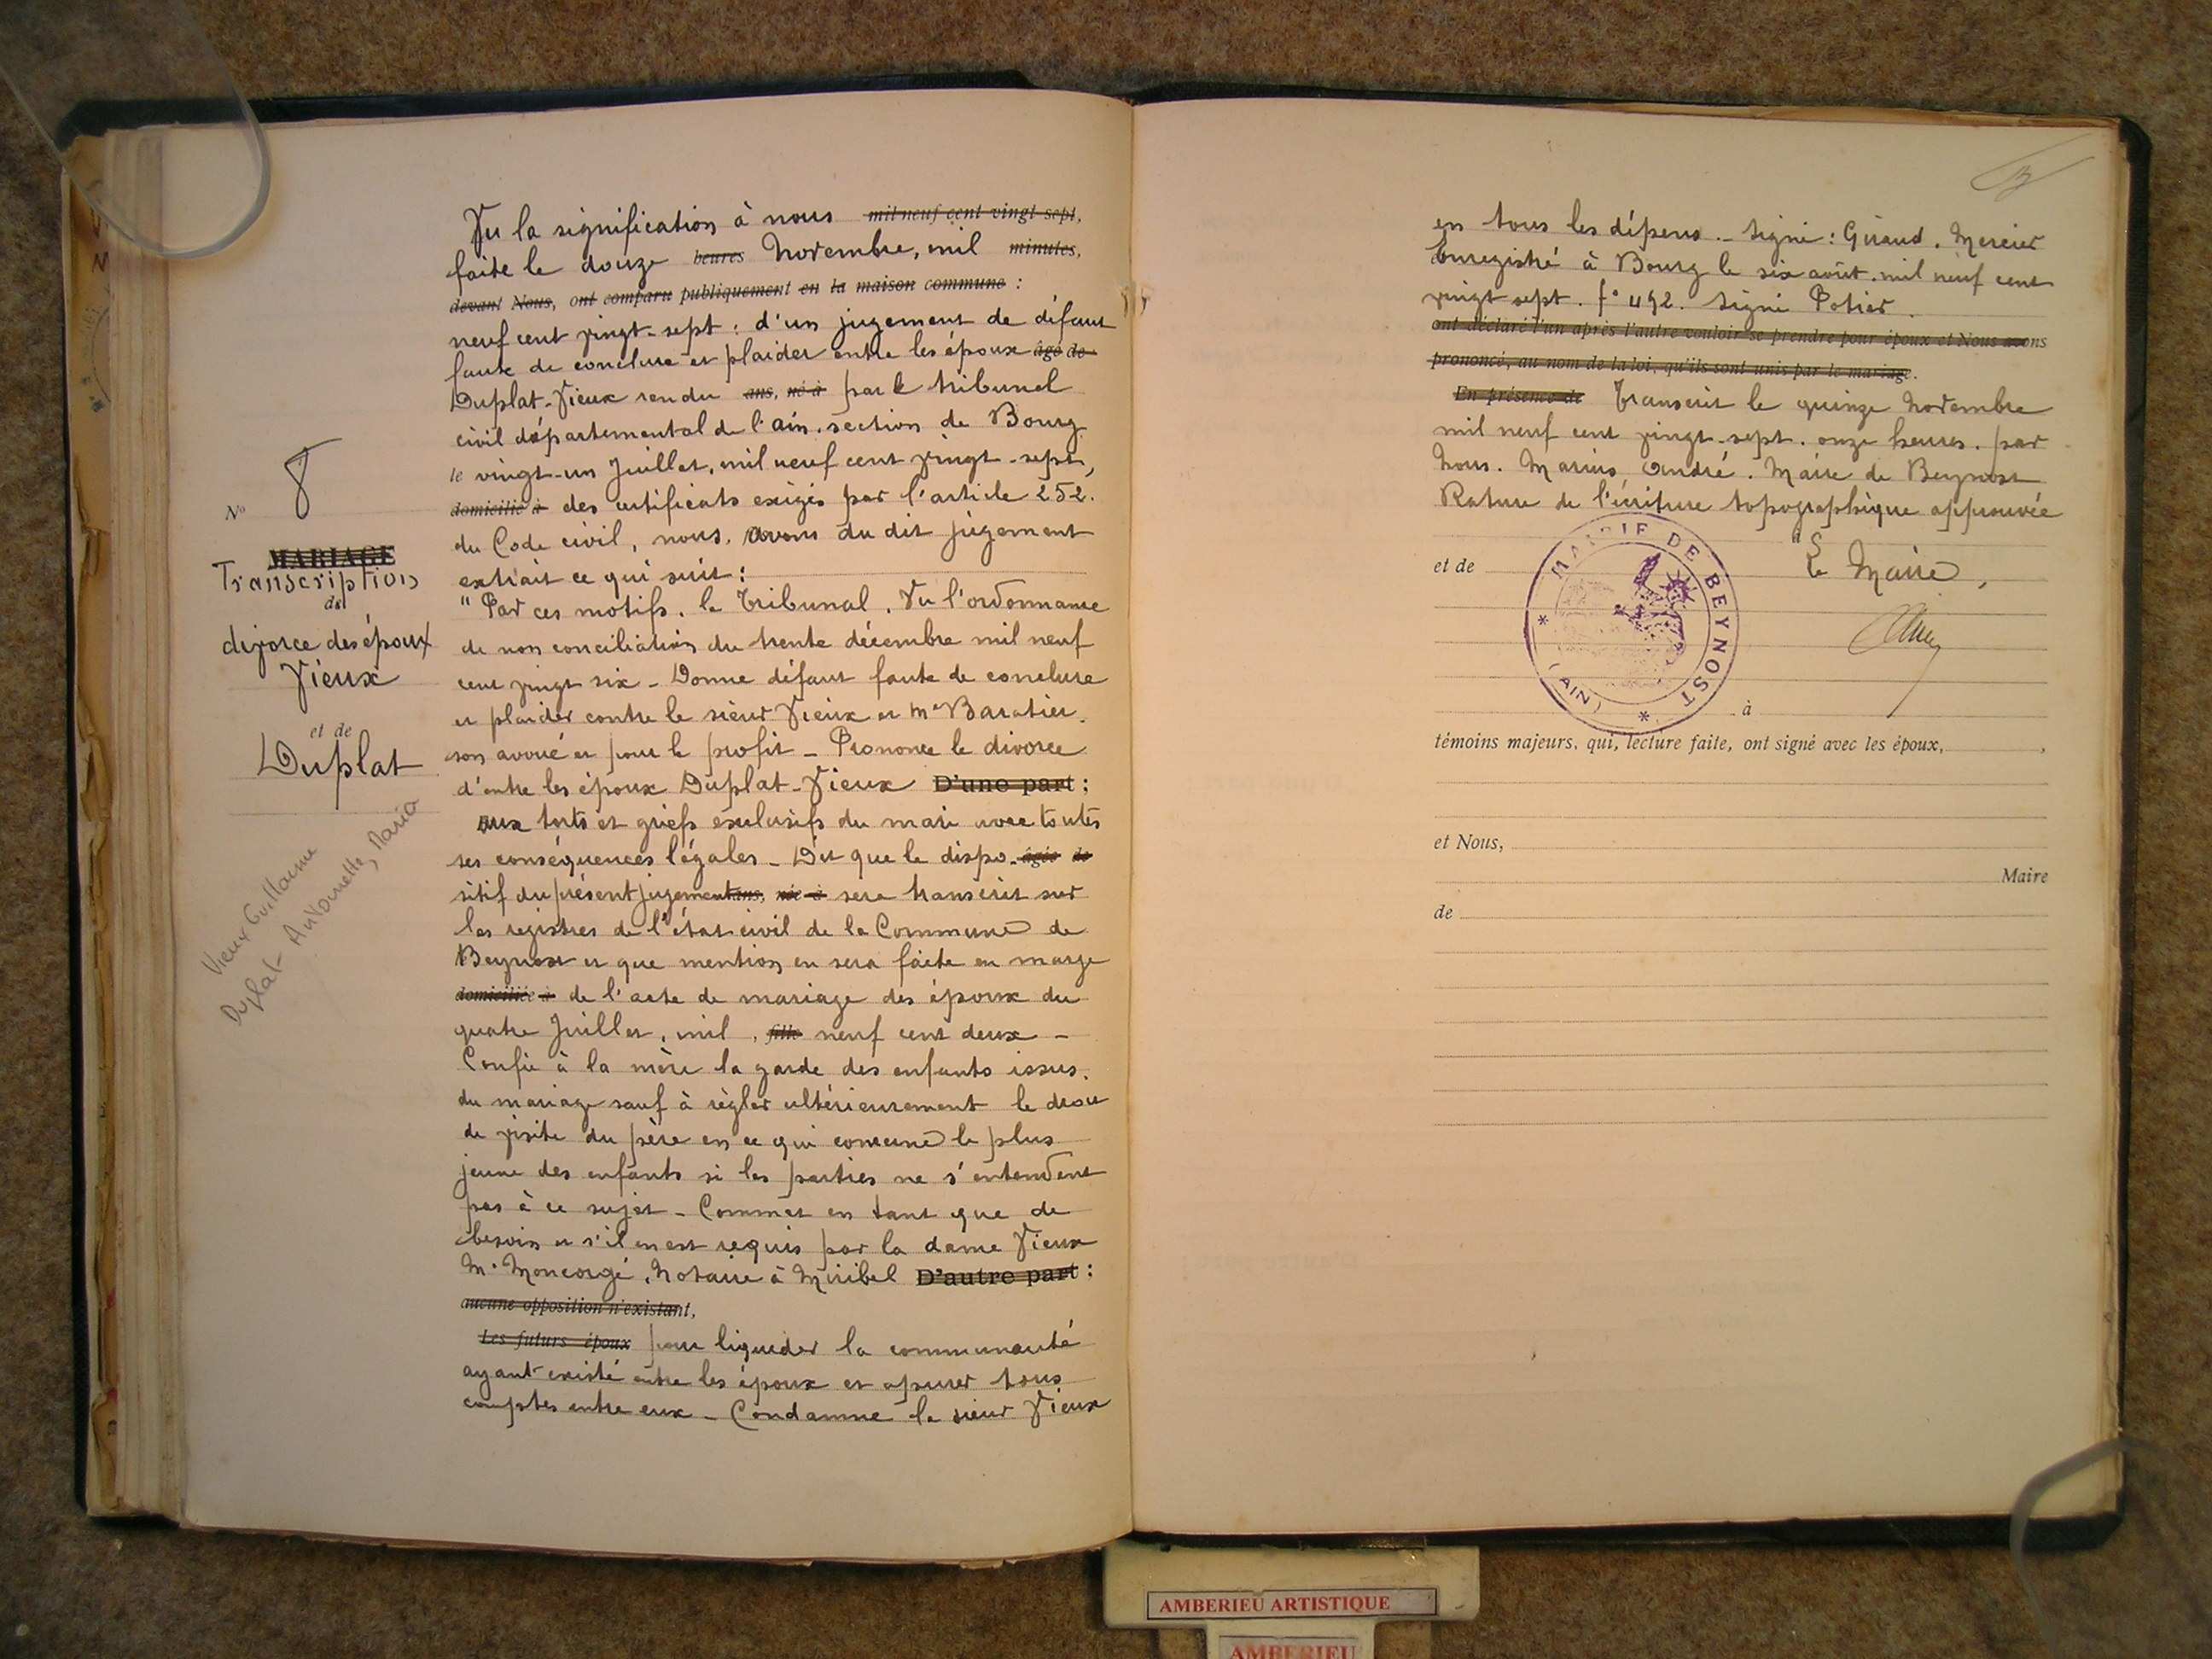 N° 8
MARIAGE
Transcription
de
divorce des époux
Vieux
et de
Duplat
Vieux Guillaume
Duplat - Antoinette, Maria
Vu la signification à nous mil neuf cent vingt sept,
faite le douze heures Novembre, mil minutes,
devant Nous, ont comparu publiquement en la maison commune :
neuf cent vingt-sept : d'un jugement de défaut
faute de conclure et plaider entre les époux âgé de
Duplat-Vieux rendu ans, né à par le tribunal
civil départemental de l'ain. section de Bourg
le vingt-un Juillet, mil neuf cent vingt-sept,
domicilié à des certificats exigés par l'article 252.
du Code civil, nous, avons du dit jugement
extrait ce qui suit :
" Par ces motifs. le Tribunal. Vu l'ordonnance
de non conciliation du trente décembre mil neuf
cent vingt six - Donne défaut faute de conclure
et plaider contre le sieur Vieux et Me Baratier.
son avoué et pour le profit - Prononce le divorce
d'entre les époux Duplat-Vieux D'une part :
aux torts et griefs exclusifs du mari avec toutes
ses conséquences légales - Dit que le dispo- âgée de
sitif du présent jugement ans, née à sera transcrit sur
les registres de l'état civil de la Commune de
Beynost et que mention en sera faite en marge
domiciliée à de l'acte de mariage des époux du
quatre Juillet, mil, fille neuf cent deux -
Confie à la mère la garde des enfants issus.
du mariage sauf à règler ultérieurement le droit
de visite du père en ce qui concerne le plus
jeune des enfants si les parties ne s'entendent
pas à ce sujet - Commet en tant que de
besoin et s'il en est requis par la dame Vieux
Me Moncorgé, Notaire à Miribel D'autre part :
aucune opposition n'existant,
Les futurs époux pour liquider la communauté
ayant existé entre les époux et apurer tous
comptes entre eux - Condamne le sieur Vieux
en tous les dépens - Signé : Giraud. Mercier
Enregistré à Bourg le six août mil neuf cent
vingt sept. f° 492. Signé Potier.
ont déclaré l'un après l'autre vouloir se prendre pour époux et Nous avons
prononcé, au nom de la loi, qu'ils sont unis par le mariage.
En présence de Transcrit le quinze Novembre
mil neuf cent vingt-sept. onze heures. par
Nous. Marius André. Maire de Beynost
Rature de l'écriture topographique approuvée
et de
Le Maire,
MAIRIE DE BEYNOST
(AIN)
à
témoins majeurs, qui, lecture faite, ont signé avec les époux,
et Nous,
Maire
de
AMBERIEU ARTISTIQUE
AMBERIEU